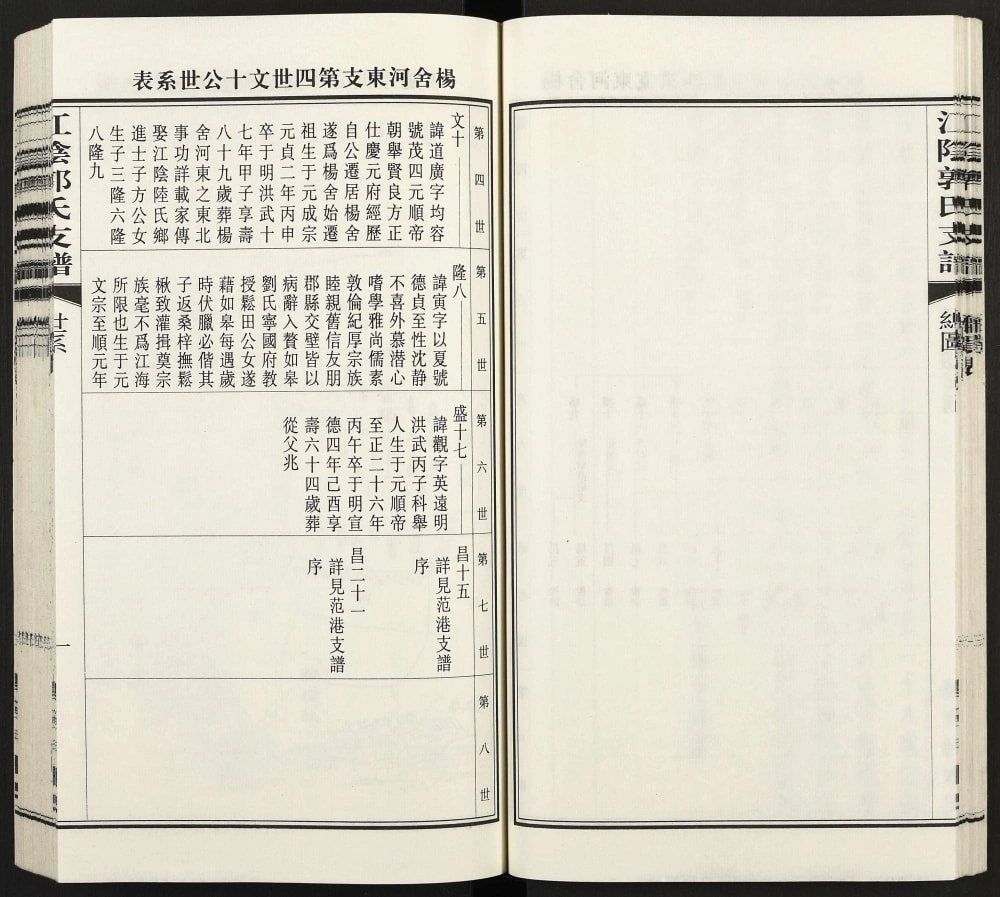 江陰郭氏支譜
總圖
楊舍河東支第四世文十公世系表
第四世
文十
諱道廣字均容
號茂四元順帝
朝舉賢良方正
仕慶元府經歷
自公遷居楊舍
遂爲楊舍始遷
祖生于元成宗
元貞二年丙申
卒于明洪武十
七年甲子享壽
八十九歲葬楊
舍河東之東北
事功詳載家傳
娶江陰陸氏鄉
進士子方公女
生子三隆六隆
八隆九
第五世
隆八
諱寅字以夏號
德貞至性沈静
不喜外慕潜心
嗜學雅尚儒素
敦倫紀厚宗族
睦親舊信友朋
郡縣交壁皆以
病辭入贅如皋
劉氏寧國府教
授鬆田公女遂
藉如皋每遇歲
時伏臘必偕其
子返桑梓撫鬆
楸致灌揖奠宗
族毫不爲江海
所限也生于元
文宗至順元年
第六世
盛十七
諱觀字英遠明
洪武丙子科舉
人生于元順帝
至正二十六年
丙午卒于明宣
德四年己酉享
壽六十四歲葬
從父兆
第七世
昌十五
詳見范港支譜
序
昌二十一
詳見范港支譜
序
第八世
江陰郭氏支譜
世系
一